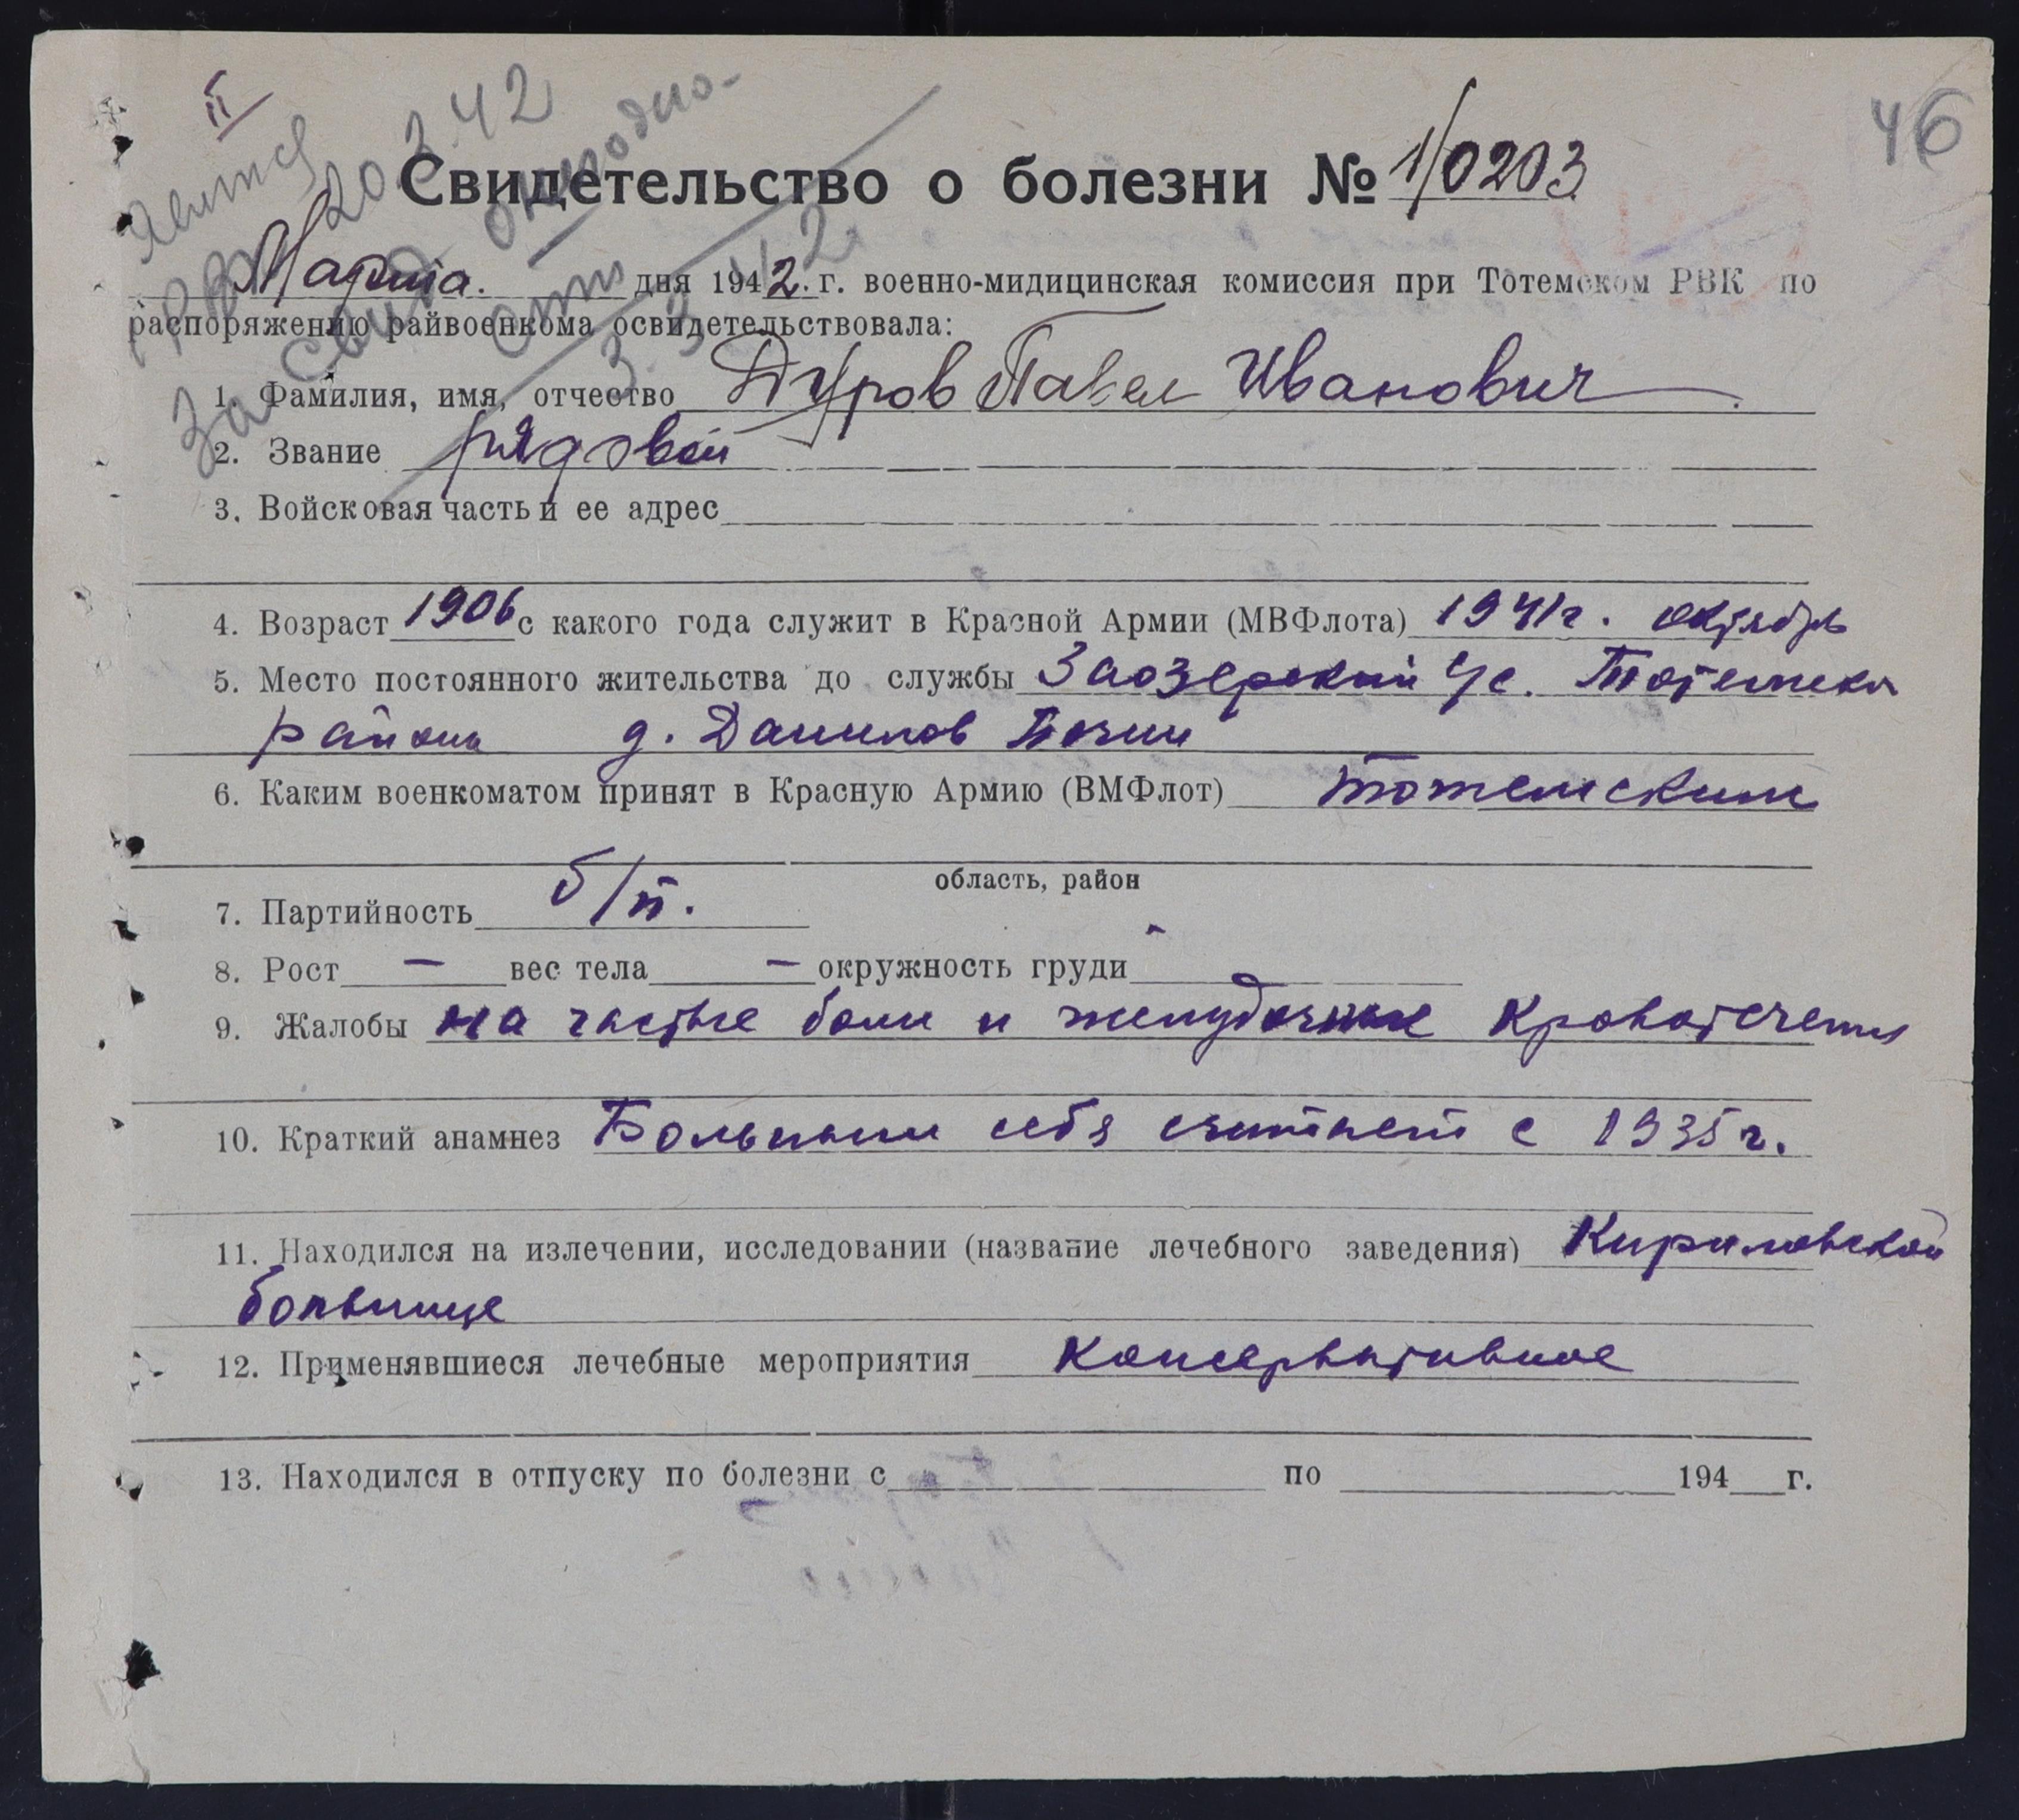 II
46
Явится
20 3 42
Свидетельство о болезни № 1/0203
Марта. дня 1942. г. военно-мидицинская комиссия при Тотемском РВК по
распоряжению райвоенкома освидетельствовала:
За свид
от
3. 3 42
1. Фамилия, имя, отчество Дуров Павел Иванович
2. Звание рядовой
3. Войсковая часть и ее адрес
4. Возраст 1906 с какого года служит в Красной Армии (МВФлота) 1941г. октябрь
5. Место постоянного жительства до службы Заозерский с/с. Тотемск
района д. Данилов Почин
6. Каким военкоматом принят в Красную Армию (ВМФлот) тотемским
область, район
7. Партийность б/п.
8. Рост — вес тела — окружность груди -
9. Жалобы на частые боли и желудочные кровотечения
10. Краткий анамнез Больным себя считает с 1935 г.
11. Находился на излечении, исследовании (название лечебного заведения) Кириловской
больнице
12. Применявшиеся лечебные мероприятия консервативное
13. Находился в отпуску по болезни с по 194 г.